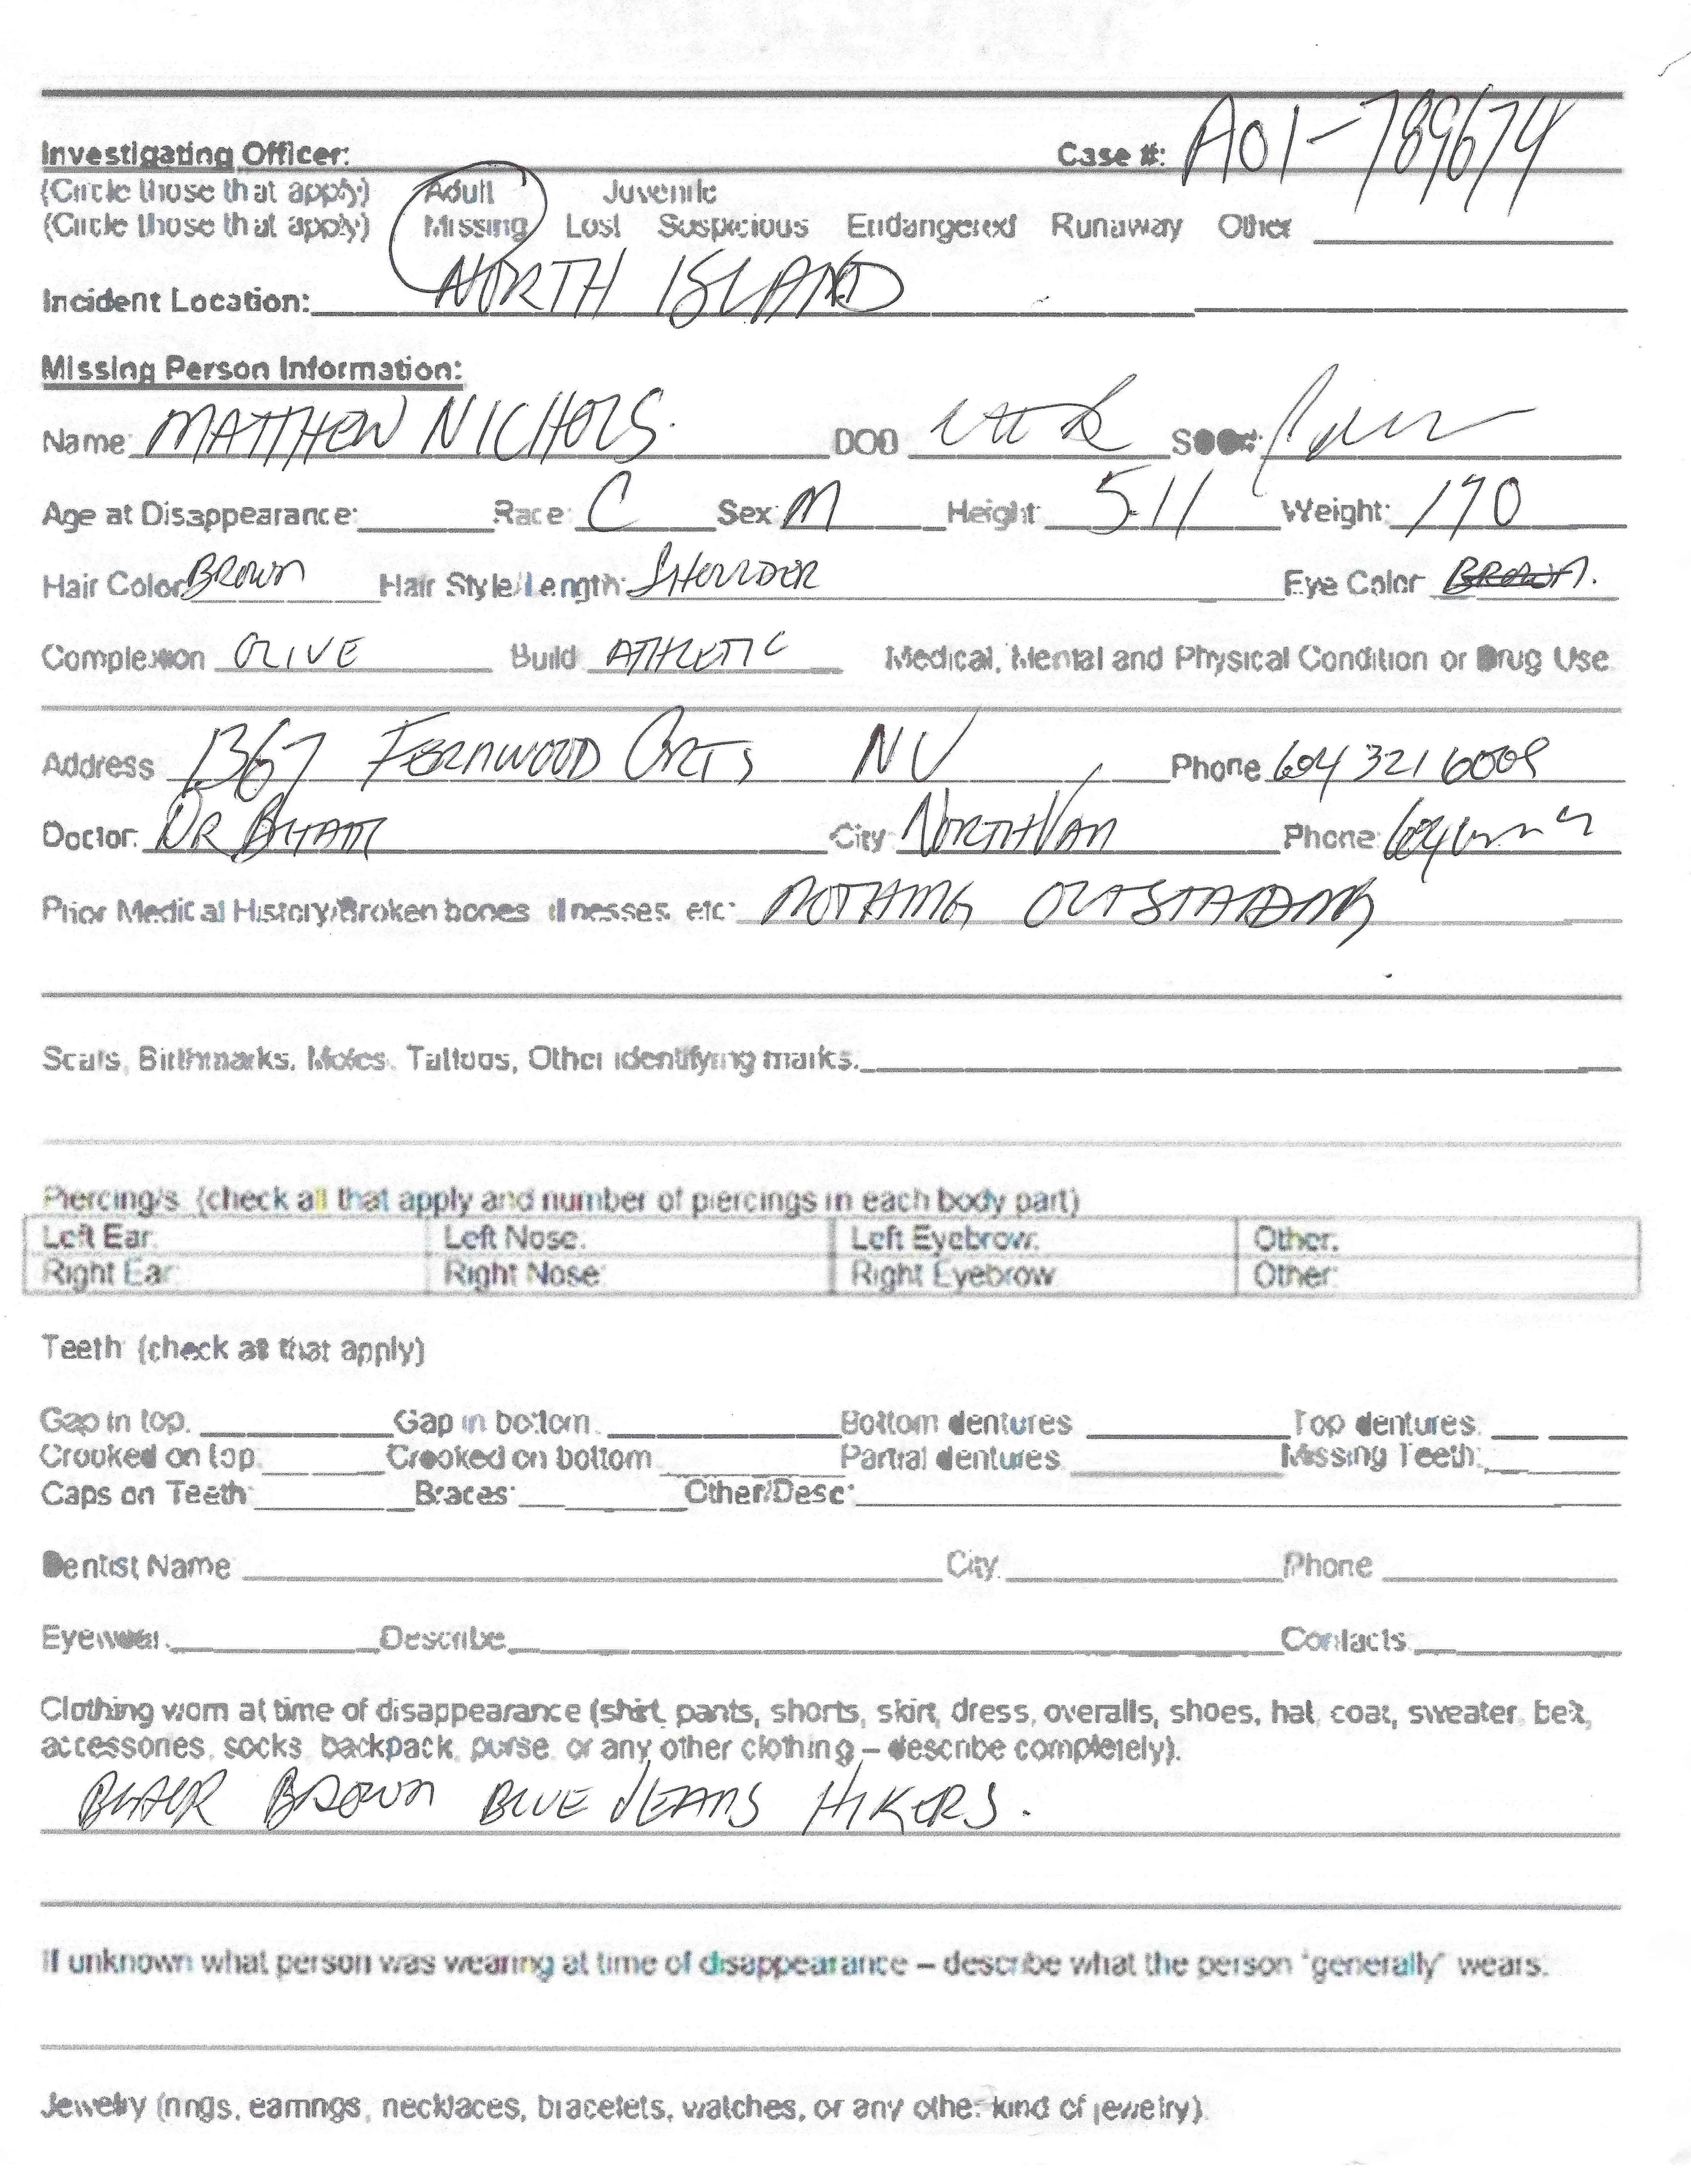 Investigating Officer: Case #: A01-789674
(Circle those that apply) Adult Juvenile
(Circle those that apply) Missing Lost Suspicious Endangered Runaway Other
Incident Location: NORTH ISLAND
Missing Person Information:
Name: MATTHEW NICHOLS. DOB
Age at Disappearance: Race: C Sex: M Height: 5.11 Weight: 190
Hair Color: BROWN Hair Style/Length: SHOULDER Eye Color BROWN.
Complexion OLIVE Build ATHLETIC Medical, Mental and Physical Condition or Drug Use
Address 1367 FERNWOOD CRTS NV Phone 604 321 6009
Doctor: DR City NORTH VAN Phone: 604
Prior Medical History/Broken bones, illnesses, etc: NOTHING OUTSTANDING
Scars, Birthmarks, Moles, Tattoos, Other identifying marks:
Piercing/s (check all that apply and number of piercings in each body part)
Left Ear: Left Nose: Left Eyebrow: Other:
Right Ear: Right Nose: Right Eyebrow Other:
Teeth: (check all that apply)
Gap in top: Gap in bottom: Bottom dentures Top dentures:
Crooked on top: Crooked on bottom Partial dentures Missing Teeth:
Caps on Teeth: Braces: Other/Desc:
Dentist Name City Phone
Eyewear: Describe Contacts
Clothing worn at time of disappearance (shirt, pants, shorts, skirt, dress, overalls, shoes, hat, coat, sweater, belt,
accessories, socks, backpack, purse, or any other clothing – describe completely).
BROWN BLUE JEANS HIKERS.
If unknown what person was wearing at time of disappearance – describe what the person 'generally' wears:
Jewelry (rings, earrings, necklaces, bracelets, watches, or any other kind of jewelry)